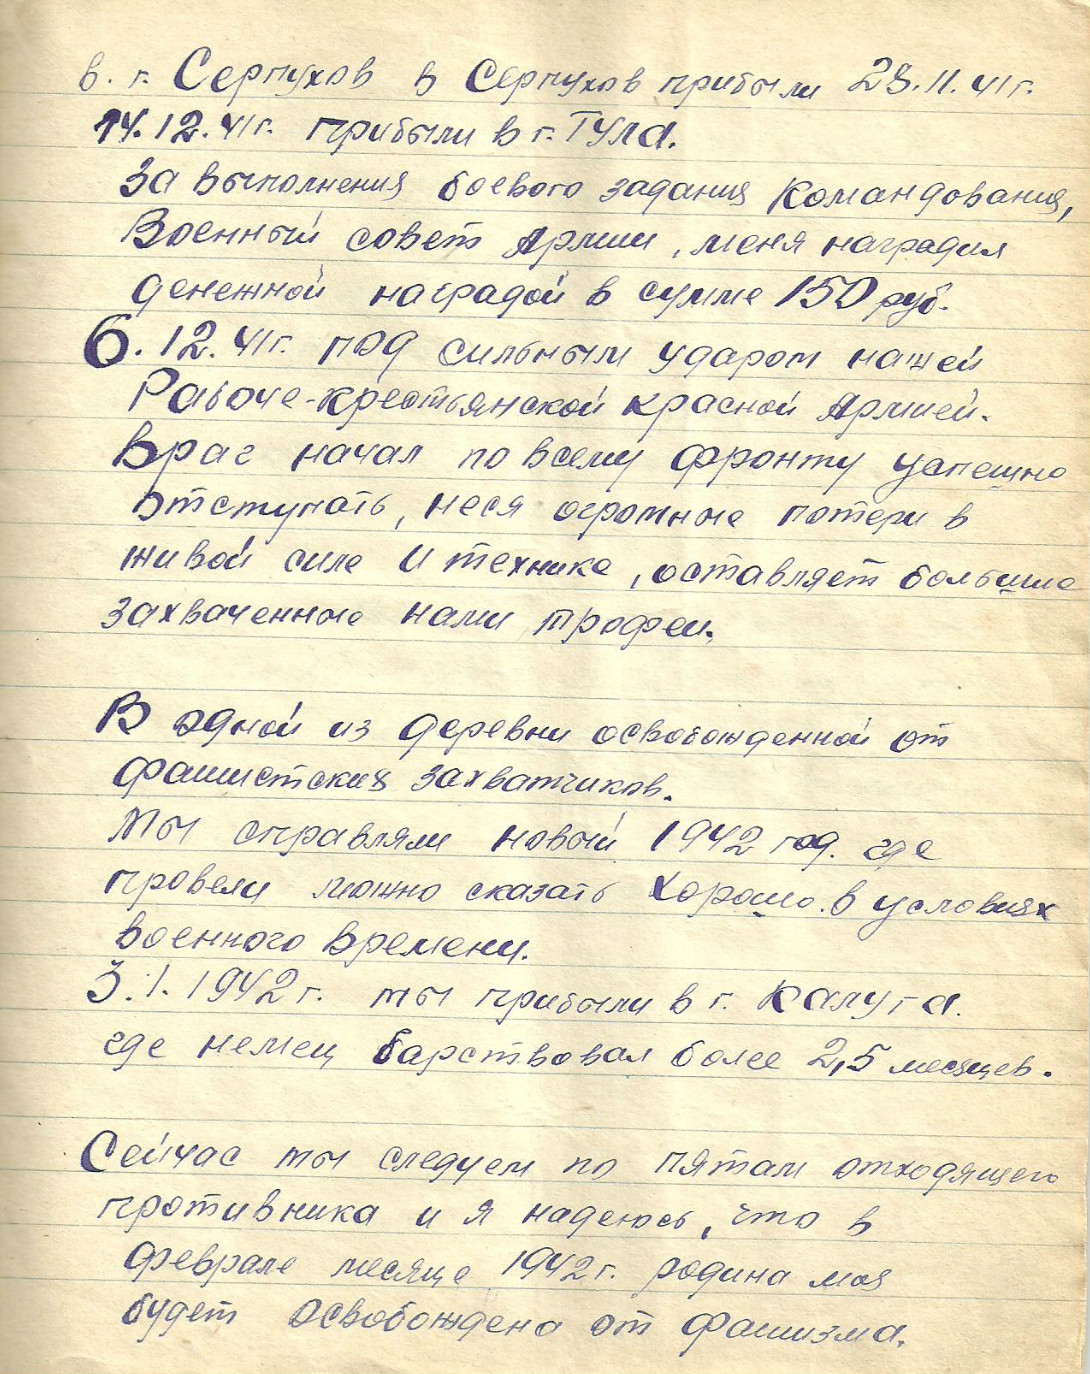 в. г. Серпухов в Серпухов прибыли 28.11.41г.
14.12.41г. прибыли в г. Тула.
За выполнения боевого задания командования,
Военный совет Армии, меня наградил
денежной наградой в сумме 150 руб.
6.12.41г. под сильным ударом нашей
Рабоче-крестьянской красной Армией.
Враг начал по всему фронту успешно
отступать, неся огромные потери в
живой силе и технике, оставляет большие
захваченные нами трофеи.
В одной из деревни освобожденной от
фашистских захватчиков.
Мы справляли новый 1942 год. где
провели можно сказать хорошо. в условиях
военного времени.
3.1.1942г. мы прибыли в г. Калуга.
где немец барствовал более 2,5 месяцев.
Сейчас мы следуем по пятам отходящего
противника и я надеюсь, что в
феврале месяце 1942г. родина моя
будет освобождена от фашизма.